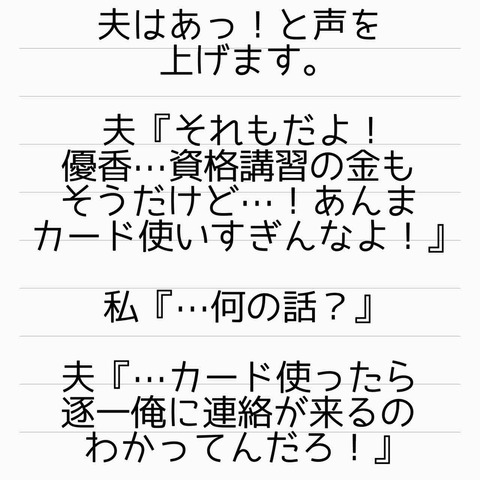 夫はあっ！と声を
上げます。
夫『それもだよ！
優香…資格講習の金も
そうだけど…！あんま
カード使いすぎんなよ！』
私『…何の話？』
夫『…カード使ったら
逐一俺に連絡が来るの
わかってんだろ！』